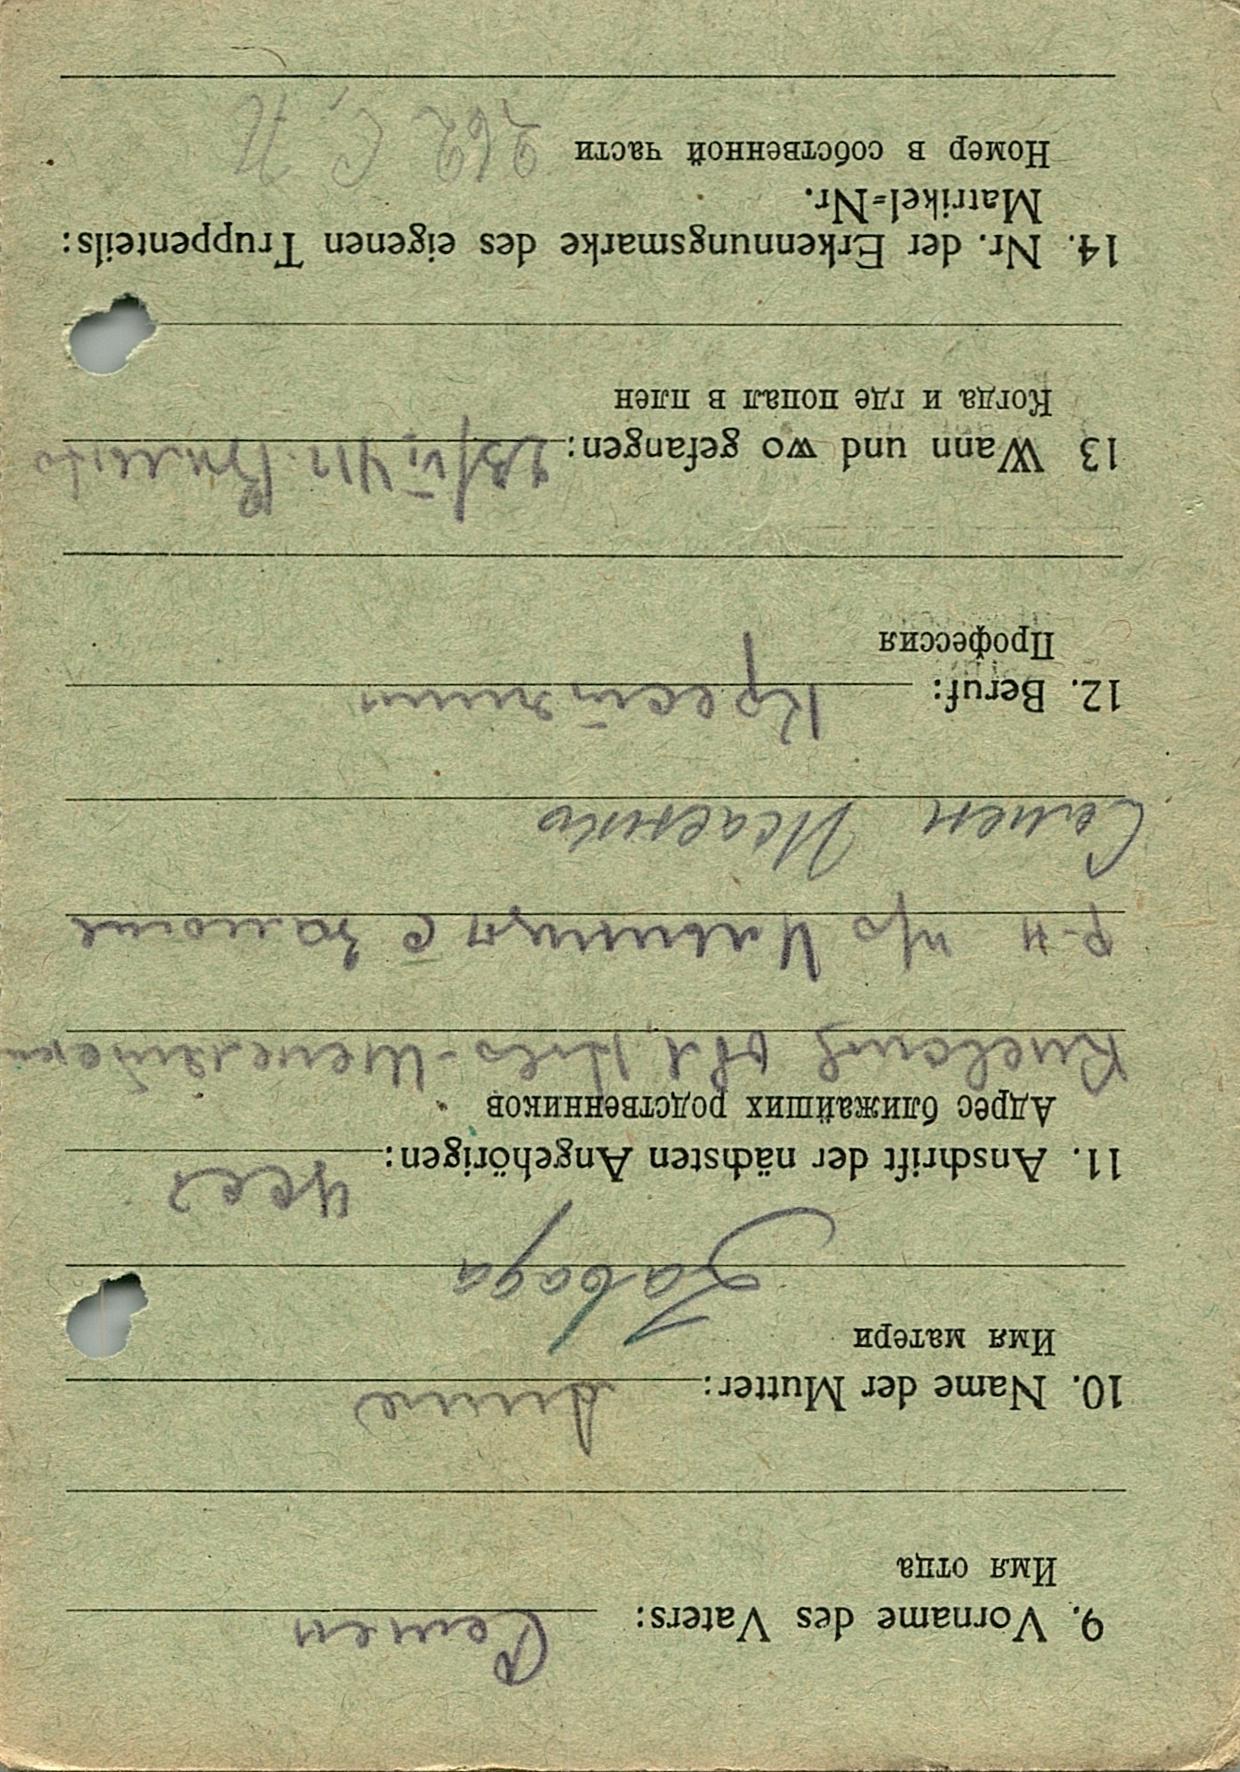 9. Vorname des Vaters: Семен
Имя отца
10. Name der Mutter: Анне
Имя матери
Завода
11. Anschrift der nächsten Angehörigen: УССР
Адрес ближайших родственников
Киевский обл
р-н п/о с
Семен Исаенко
12. Beruf: Крестянин
Профессия
13 Wann und wo gefangen: 28/VI 41
Когда и где попал в плен
14. Nr. der Erkennungsmarke des eigenen Truppenteils:
Matrikel-Nr.
Номер в собственной части 262 С, П